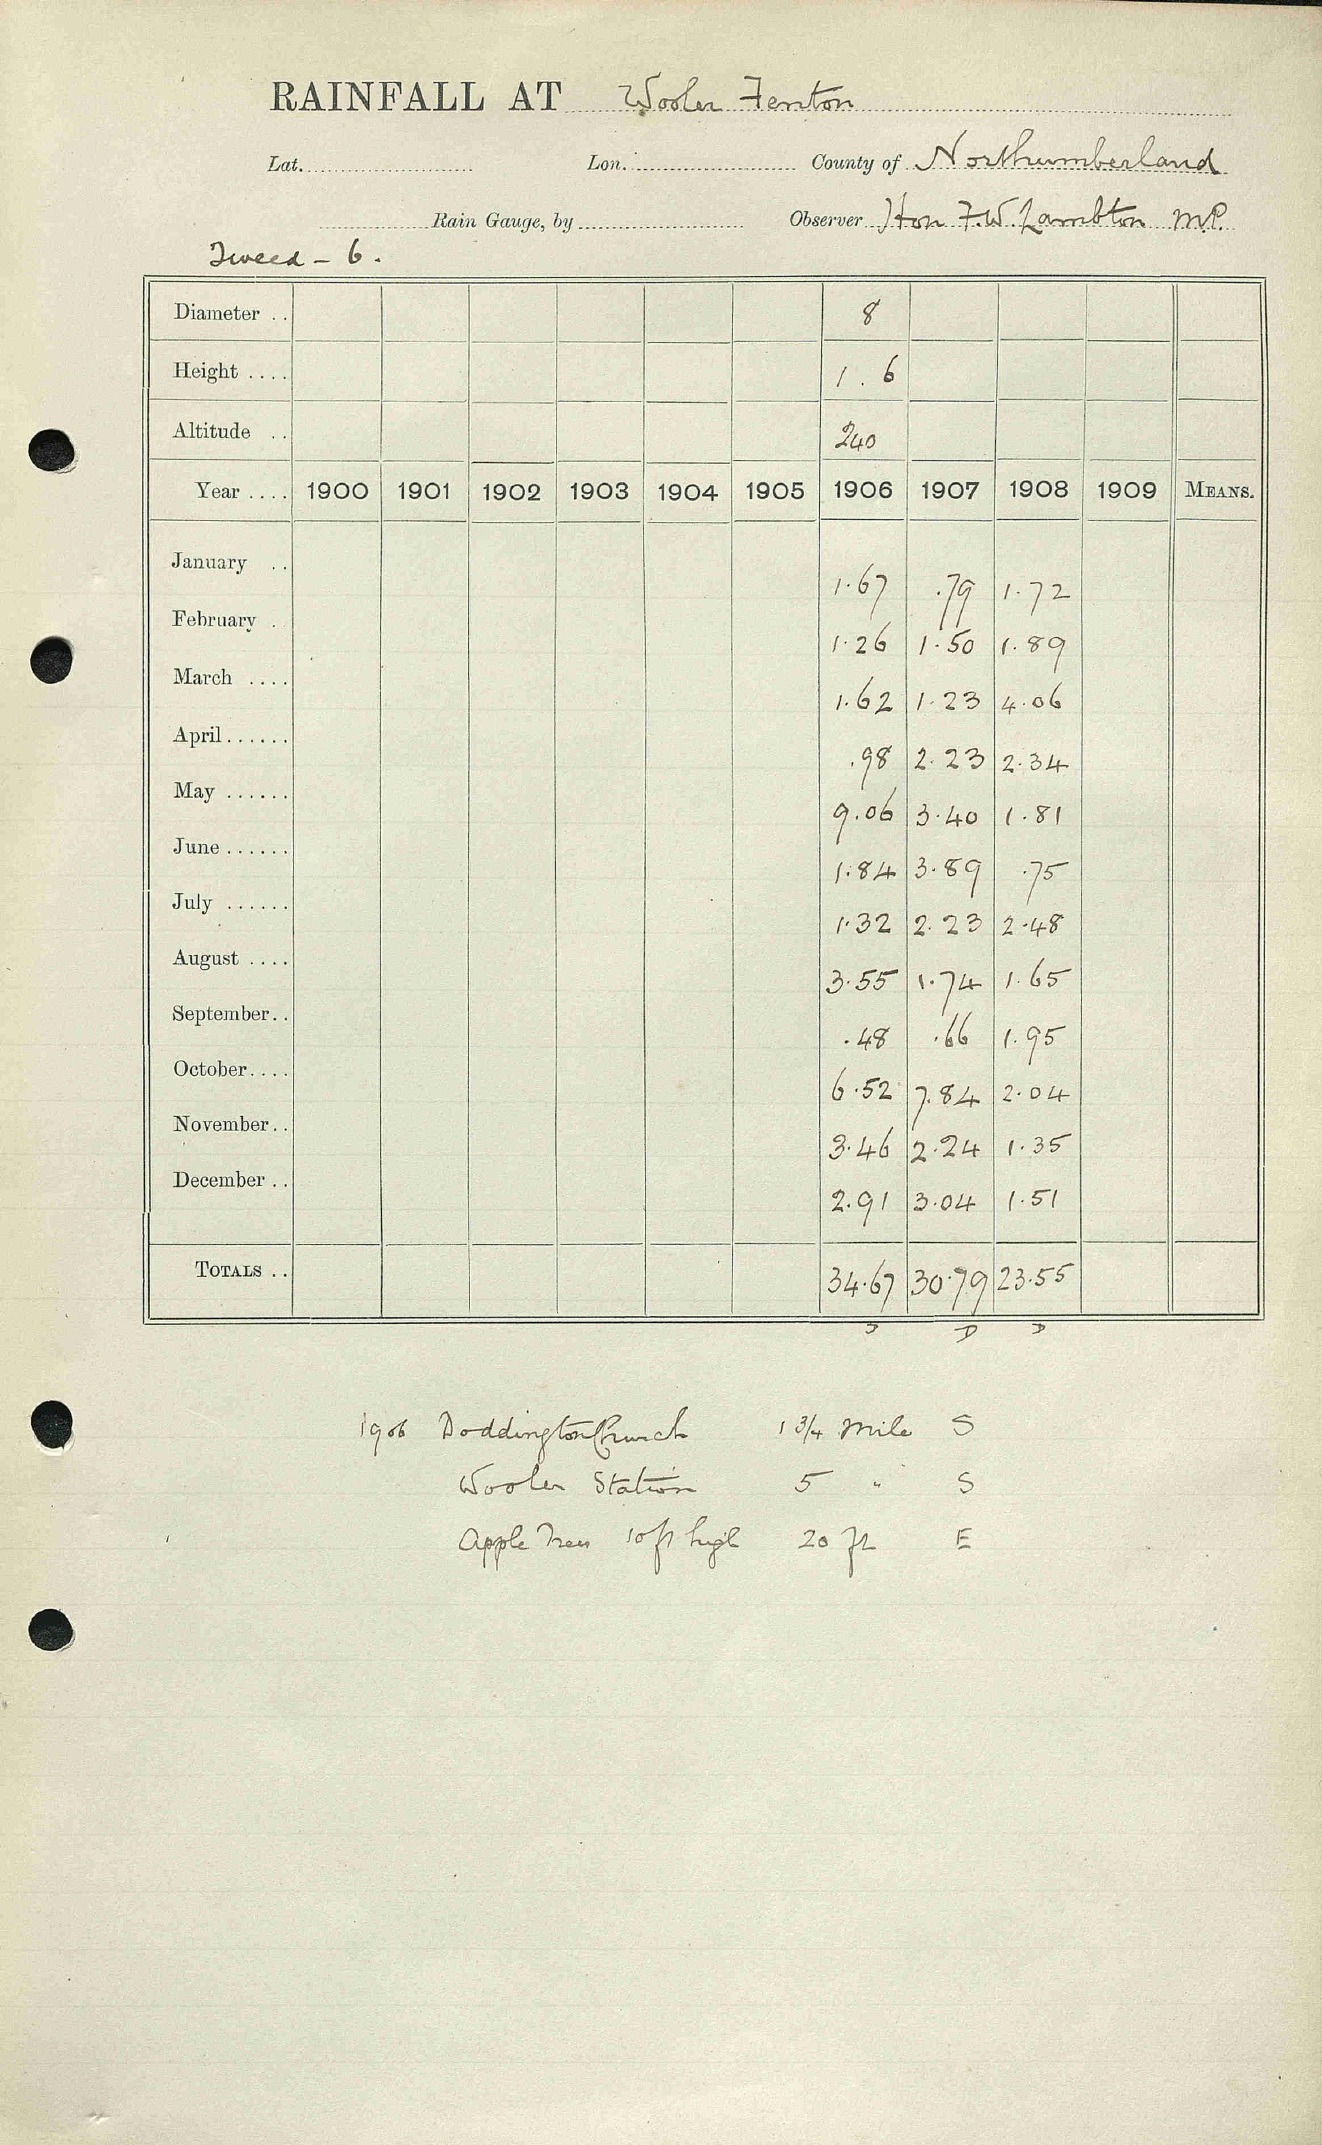 RAINFALL AT Wooler Fenton
Lat. Lon. County of Northumberland
Rain Gauge, by Observer Hon F.W. Lambton M.P.
Tweed - 6.
Diameter .. 8
Height .... 1 . 6
Altitude .. 240
Year .... 1900 1901 1902 1903 1904 1905 1906 1907 1908 1909 MEANS.
January .. 1.67 .79 1.72
February . 1.26 1.50 1.89
March .... 1.62 1.23 4.06
April...... .98 2.23 2.34
May ...... 9.06 3.40 1.81
June ...... 1.84 3.89 .75
July ...... 1.32 2.23 2.48
August .... 3.55 1.74 1.65
September.. .48 .66 1.95
October.... 6.52 7.84 2.04
November.. 3.46 2.24 1.35
December .. 2.91 3.04 1.51
TOTALS .. 34.67 30.79 23.55
D D D
1906 Doddington Church 1 3/4 Mile S
Wooler Station 5 " S
Apple Trees 10 ft high 20 ft E